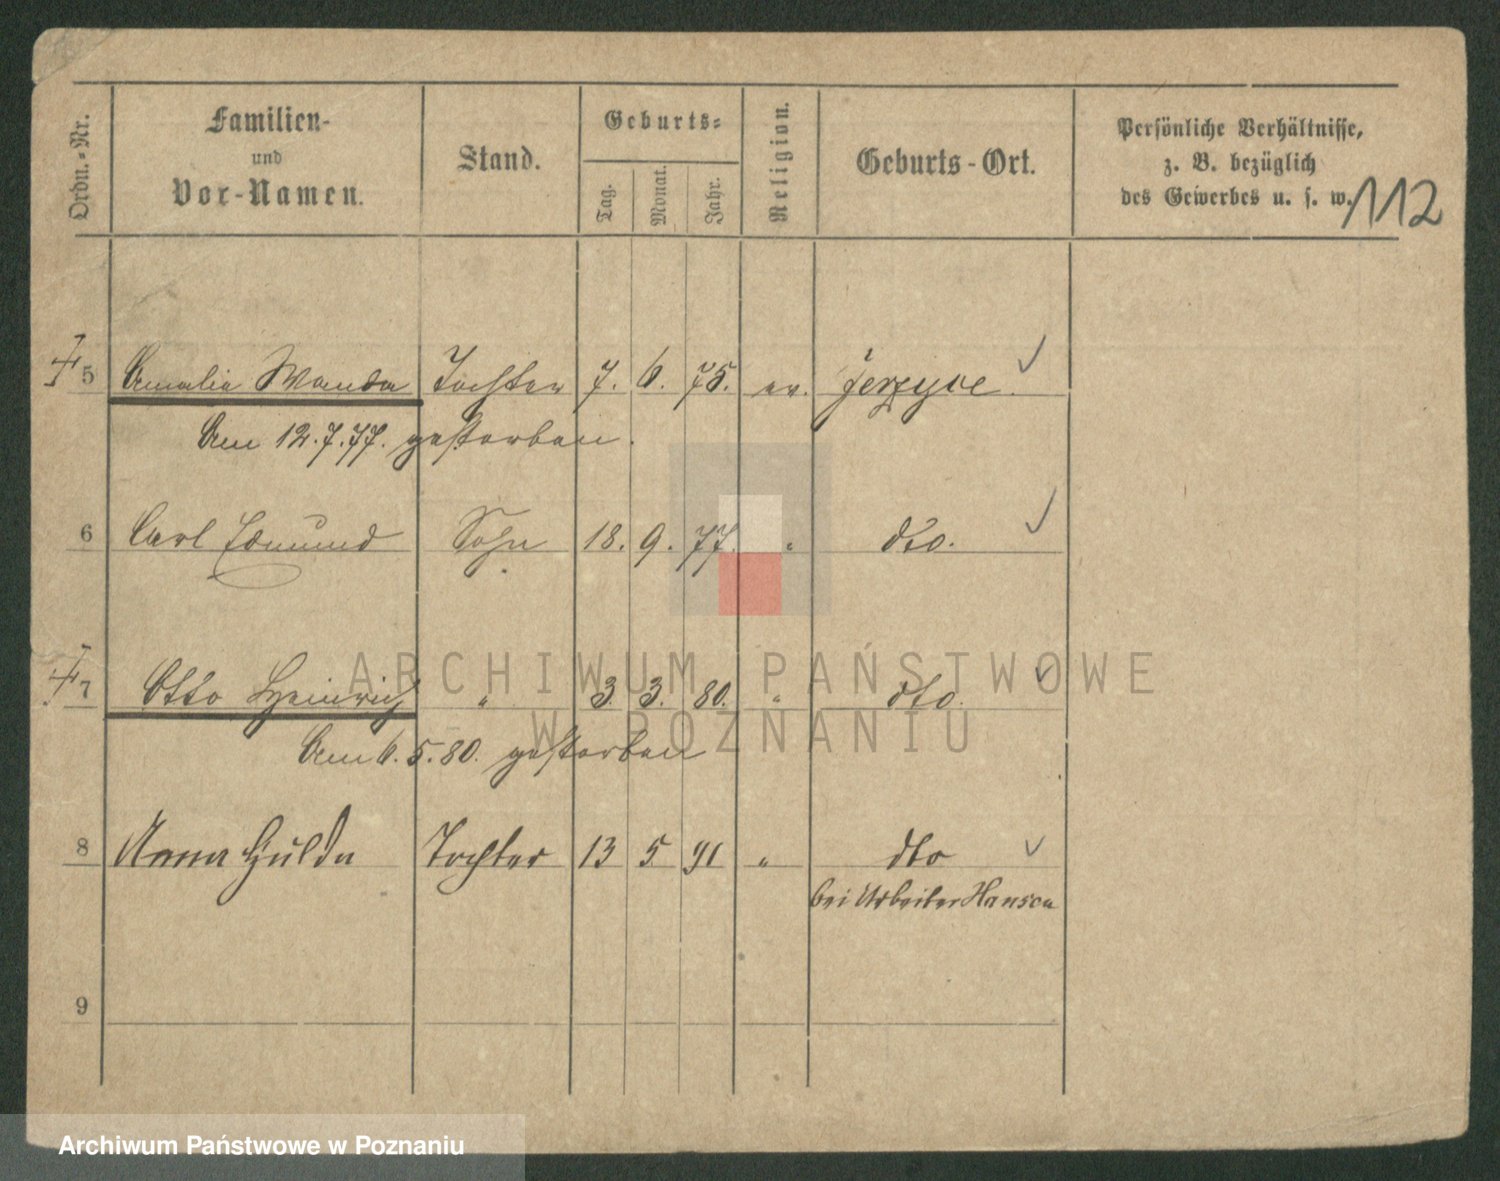 Ordn.-Nr. Familien- und Vor-Namen. Stand. Geburts- Tag. Monat. Jahr. Religion. Geburts-Ort. Persönliche Verhältnisse, z. B. bezüglich des Gewerbes u. s. w. 112
5 Amalie Wanda Tochter 7. 6. 75. ev. Jerzyce.
Am 12.7.77. gestorben.
6 Carl Edmund Sohn 18. 9. 77. " dto.
ARCHIWUM PAŃSTWOWE
7 Otto Heinrich " 3. 3. 80. " dto.
W POZNANIU
Am 6.5.80. gestorben
8 Anna Hulda Tochter 13 5 91 " dto
bei Arbeiter Hansen
9
Archiwum Państwowe w Poznaniu